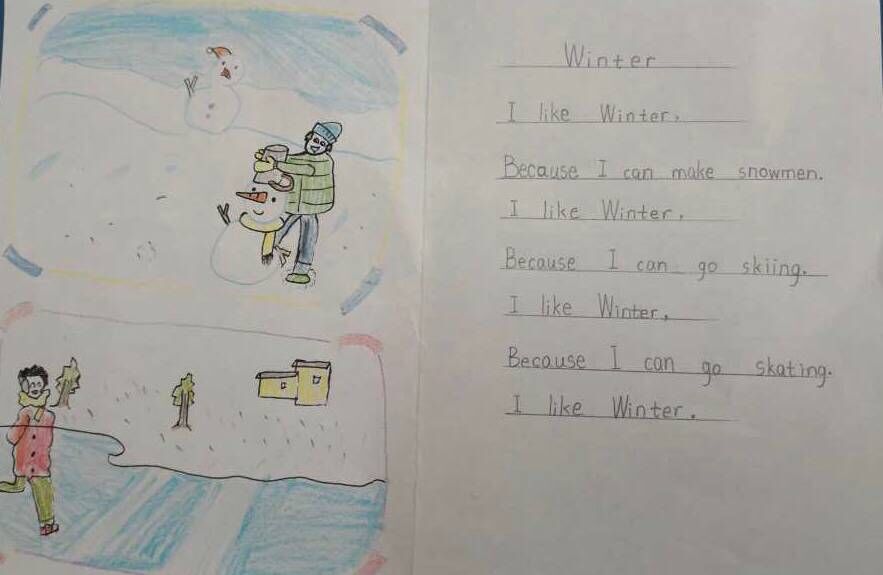 Winter
I like Winter,
Because I can make snowmen.
I like Winter,
Because I can go skiing.
I like Winter,
Because I can go skating.
I like Winter.